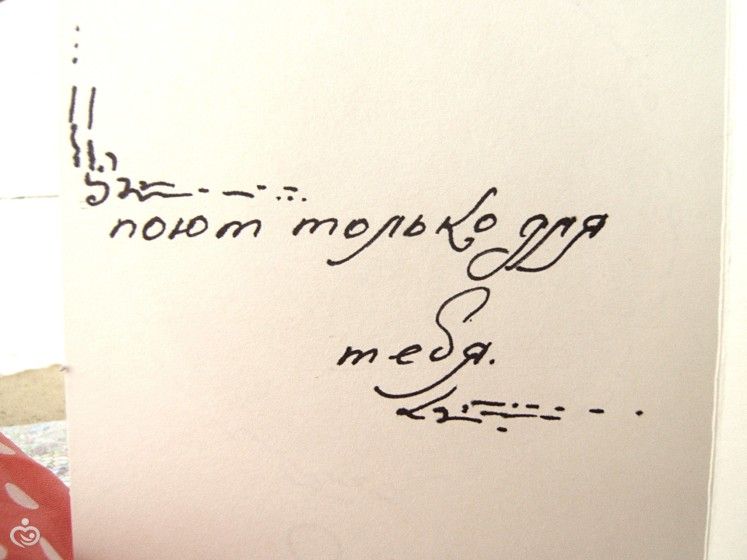 поют только для
тебя.